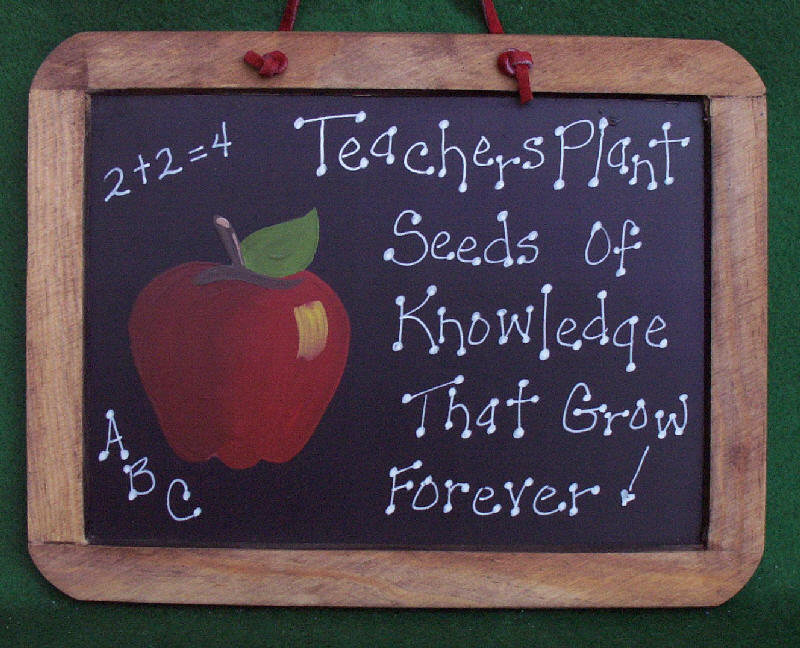 2+2=4
Teachers Plant
Seeds Of
Knowledge
That Grow
Forever!
A
B
C